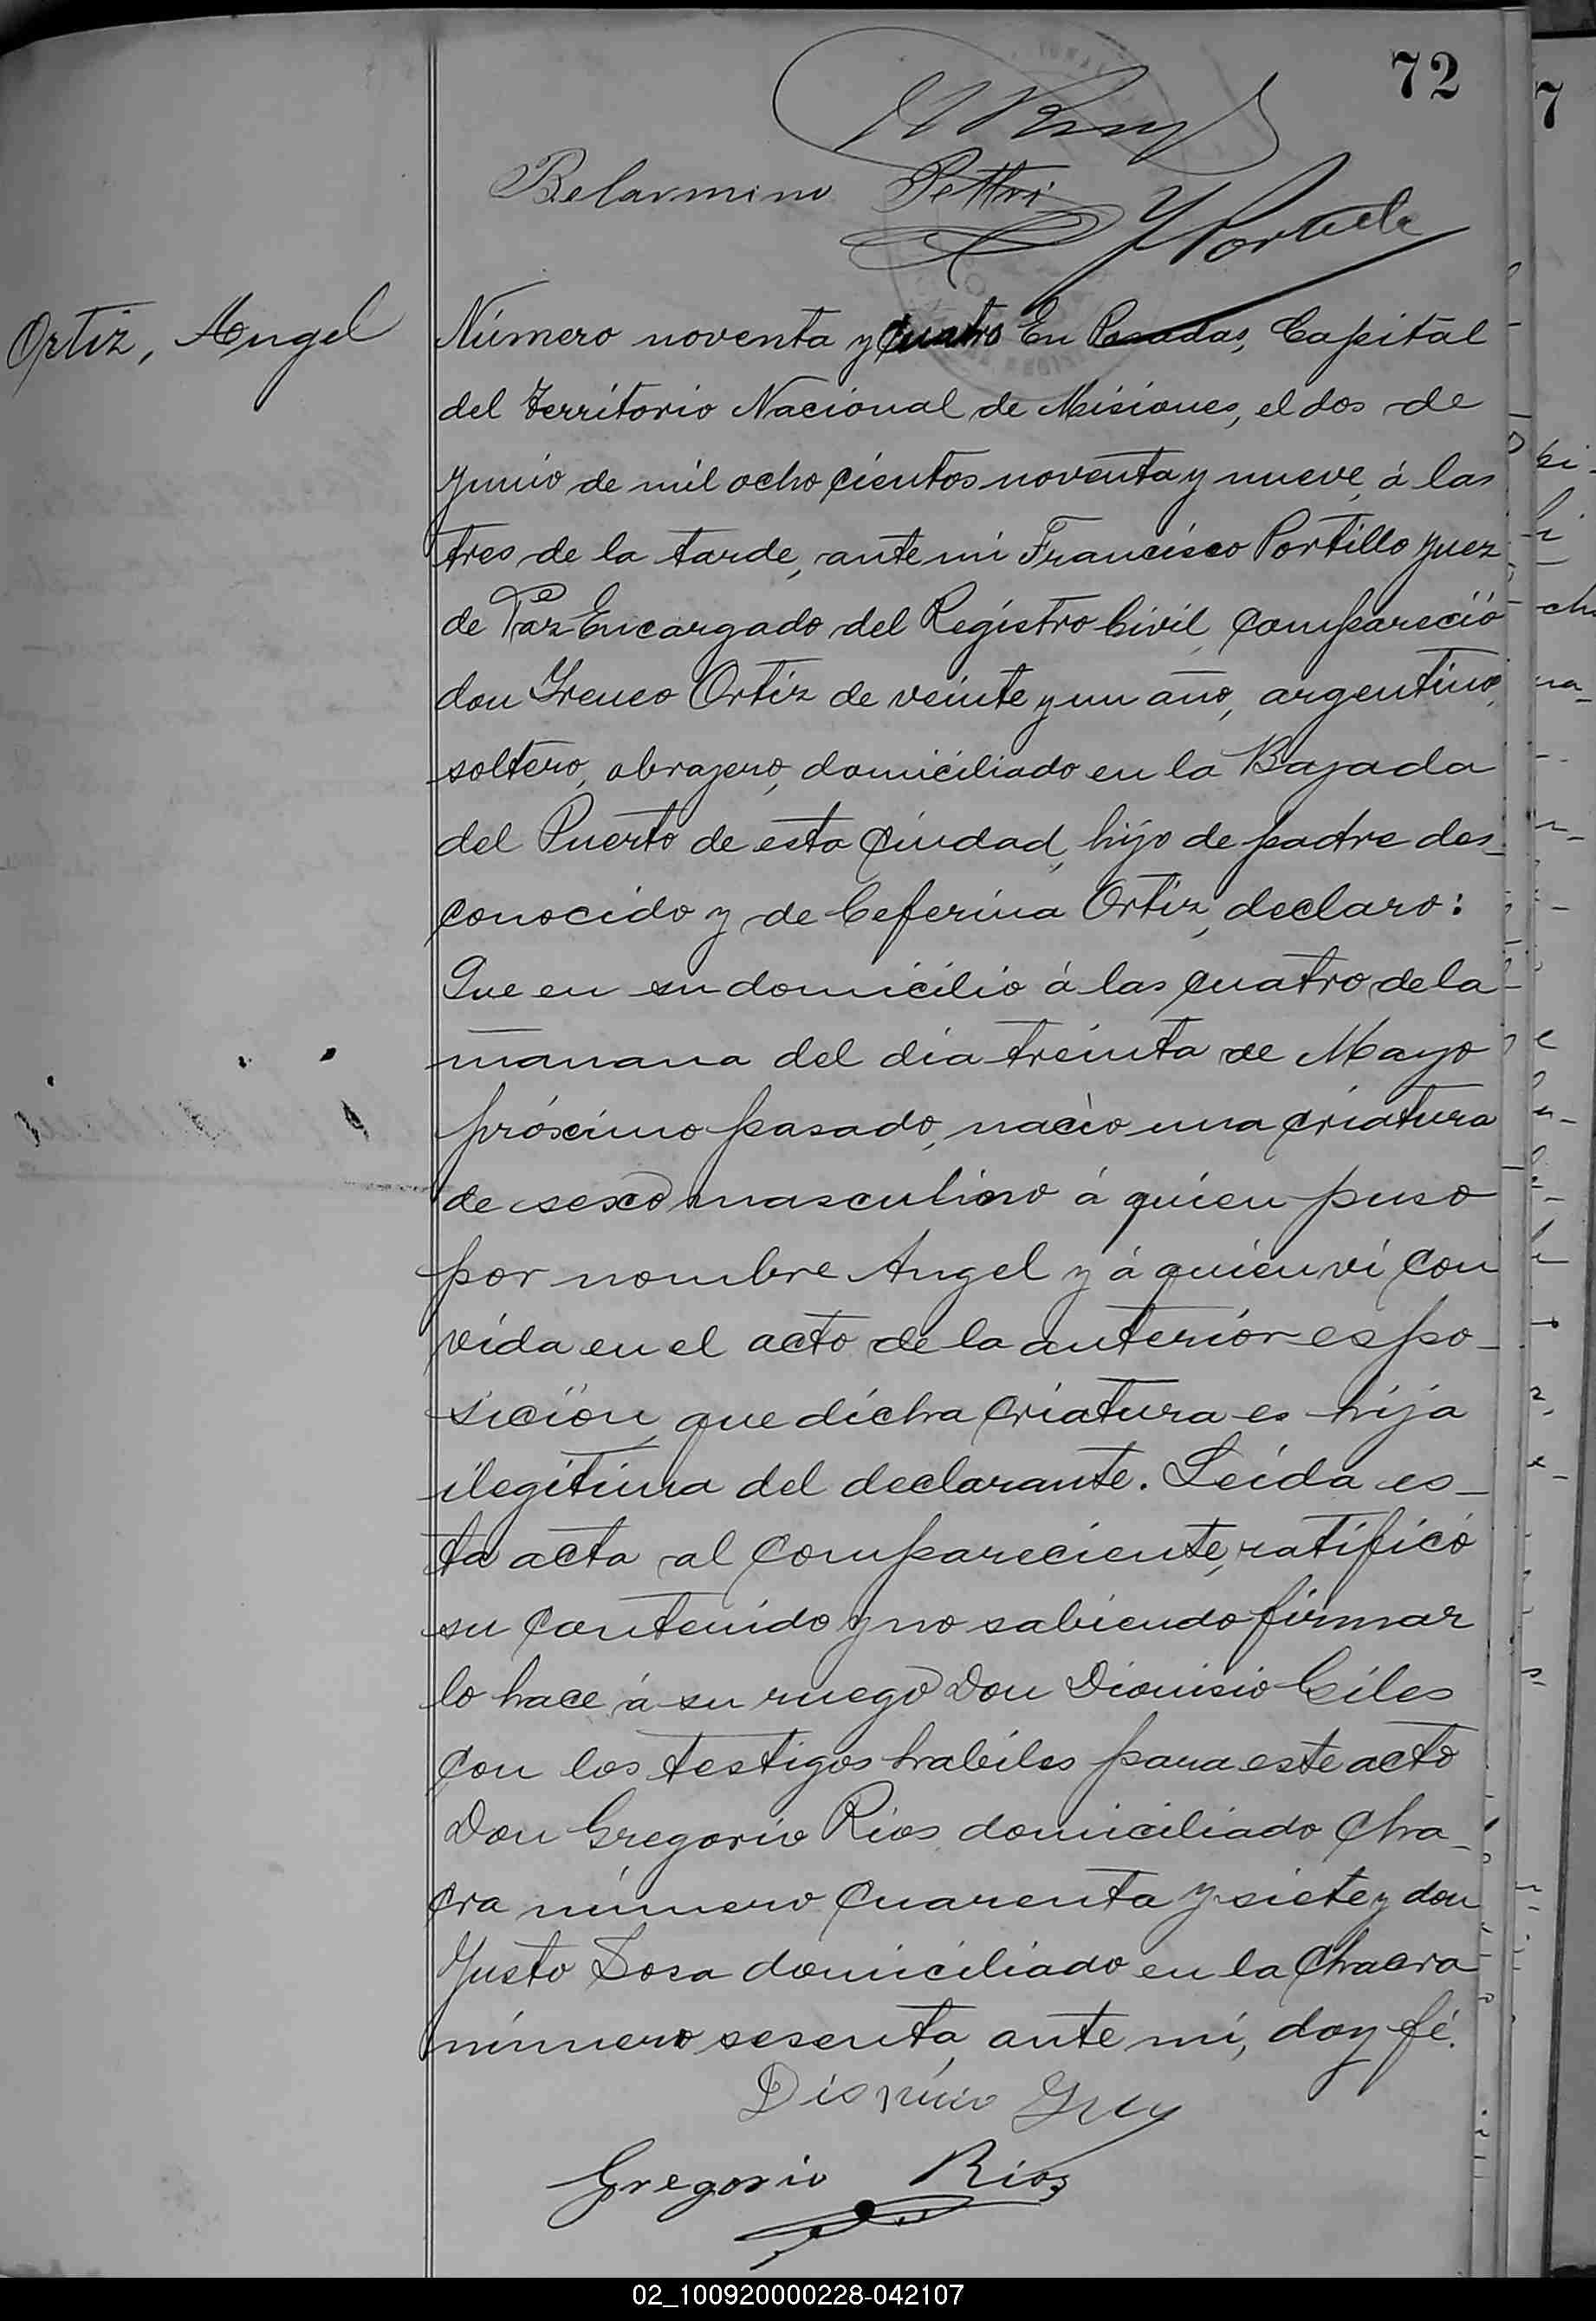 72
Belarmino Pettri
Ortiz, Angel
Número noventa y cuatro En Posadas, Capital
del Territorio Nacional de Misiones, el dos de
Junio de mil ocho cientos noventa y nueve, á las
tres de la tarde, ante mi Francisco Portillo Juez
de Paz Encargado del Registro Civil, compareció
don Yreneo Ortiz de veinte y un año, argentino,
soltero, obrajero, domiciliado en la Bajada
del Puerto de esta Ciudad, hijo de padre des-
conocido y de Ceferina Ortiz, declaro:
Que en su domicilio á las cuatro de la
mañana del dia treinta de Mayo
próximo pasado, nacio una criatura
de sexo masculino á quien puso
por nombre Angel y á quien vi con
vida en el acto de la anterior espo-
sición, que dicha criatura es hija
ilegitima del declarante. Leida es-
ta acta al compareciente, ratificó
su contenido y no sabiendo firmar
lo hace á su ruego Don Dionisio Giles
con los testigos habiles para este acto
Don Gregorio Rios domiciliado Cha-
cra número cuarenta y siete y don
Justo Sosa domiciliado en la Chacra
número sesenta, ante mi, doy fé.
Gregorio Rios
02_100920000228-042107